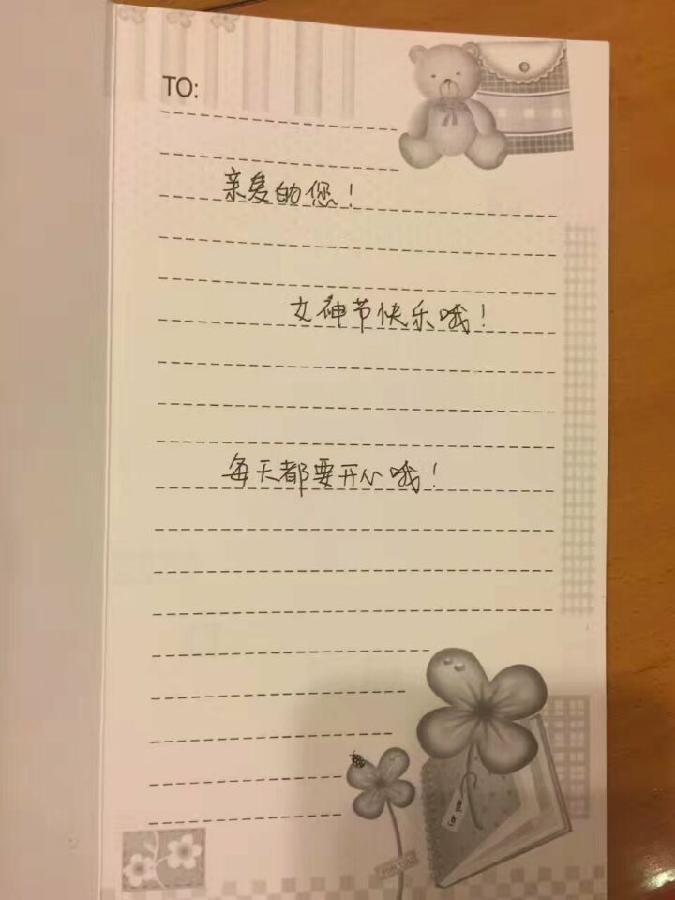 TO:
亲爱的您！
女神节快乐哦！
每天都要开心哦！
For you